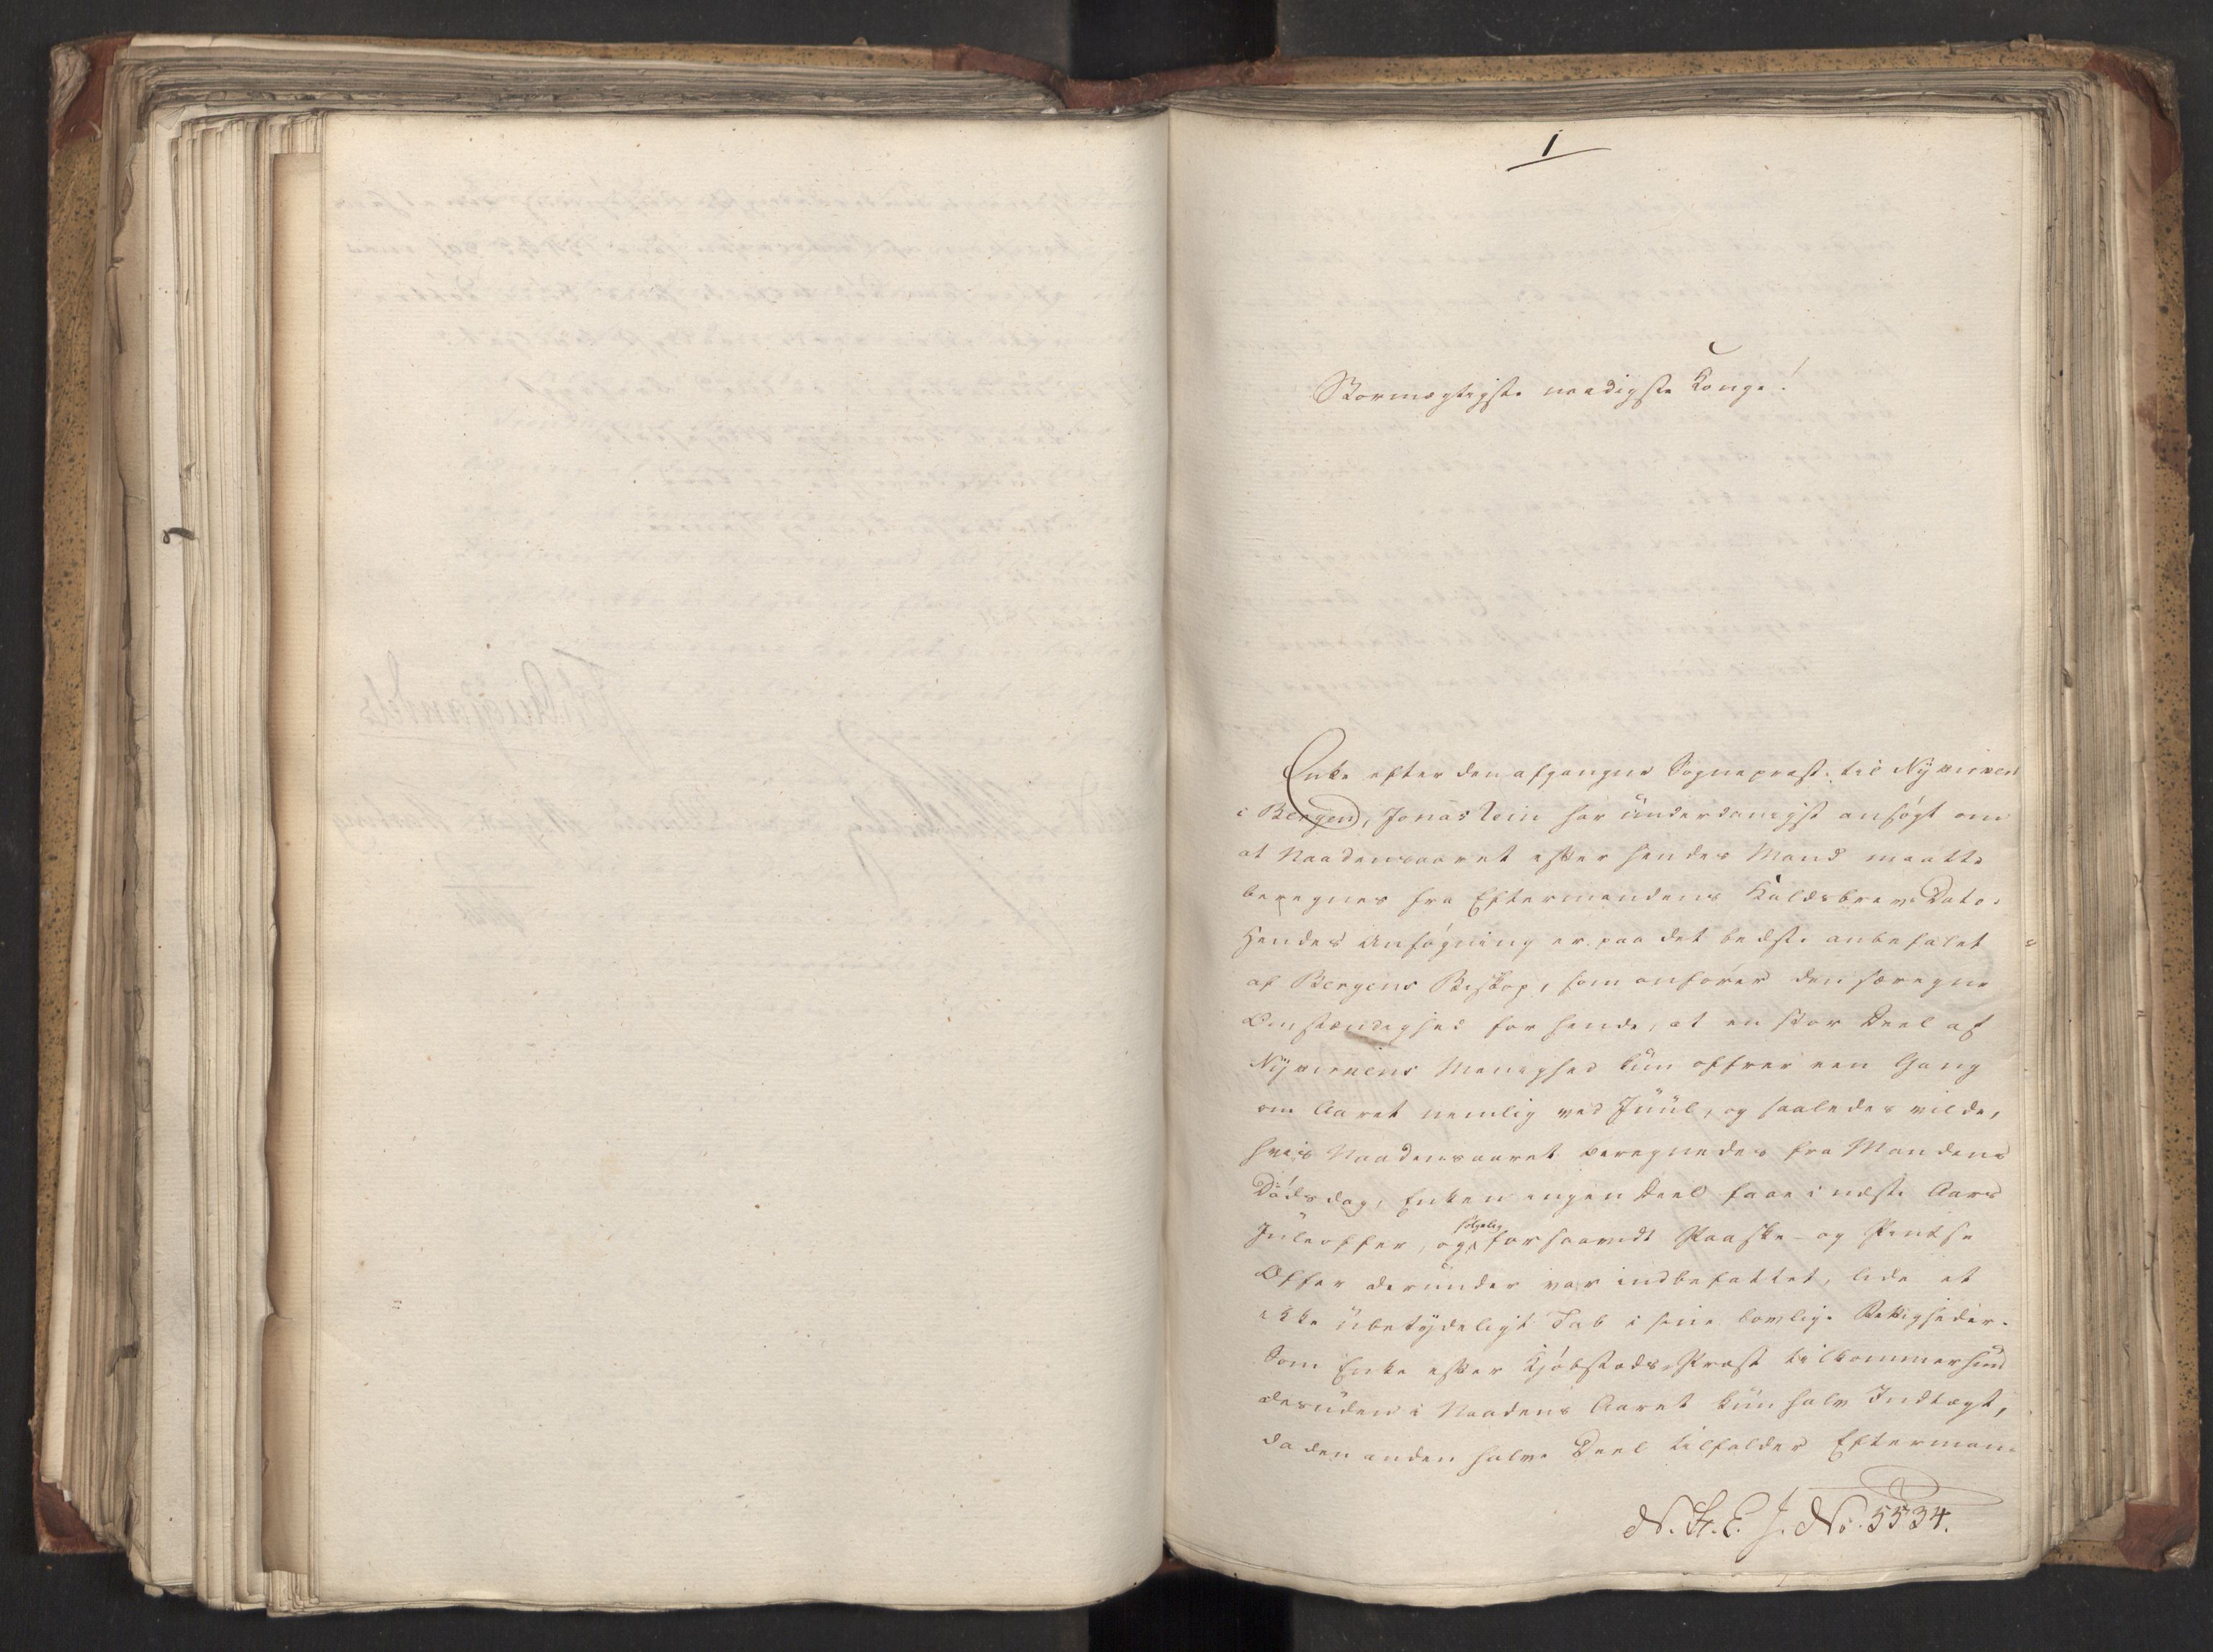 1
Stormægtigste naadigste Konge!
Enke efter den afgangne Sognepræst til Nykirken
i Bergen, Jonas Lein har ünderdanigst ansøgt om
at Naadensaaret efter hendes Mand maatte
beregnes fra Eftermandens Kaldsbrevs Dato.
Hendes Ansøgning er paa det bedste anbefalet
af Bergens Biskop, som anfører den særegne
Omstændighed for hende, at en stor Deel af
Nykirkens Menighed kün offrer een Gang
om Aaret nemlig ved Jüül, og saaledes vilde,
hvis Naadensaaret beregnedes fra Mandens
Dödsdag, Enken ingen Deel faae i næste Aars
Jüleoffer, og følgelig forsaavidt Paaske- og Pintse
Offer deründer var indbefattet, lide et
ikke übetydeligt Tab i sine lovlige Rettigheder.
Som Enke efter Kjøbstads-Præst tilkommer hün
desüden i Naadens Aaret kün halv Indtægt,
da den anden halve Deel tilfalder Efterman-
N. K. E. J. No. 5534.